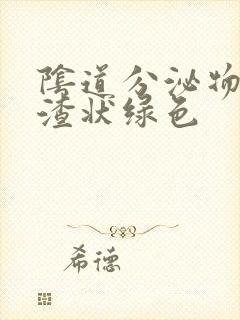 陰道分泌物
渣状绿色
希德